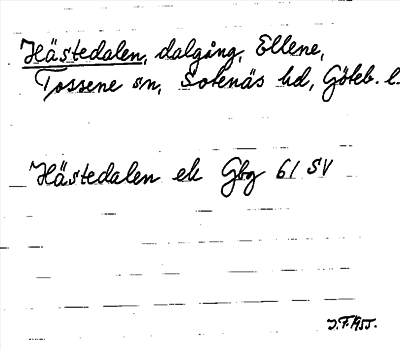 Hästedalen, dalgång, Ellene,
Tossene sn, Sotenäs hd, Göteb. l.
Hästedalen ek Gbg 61 SV
J.F. 1955.